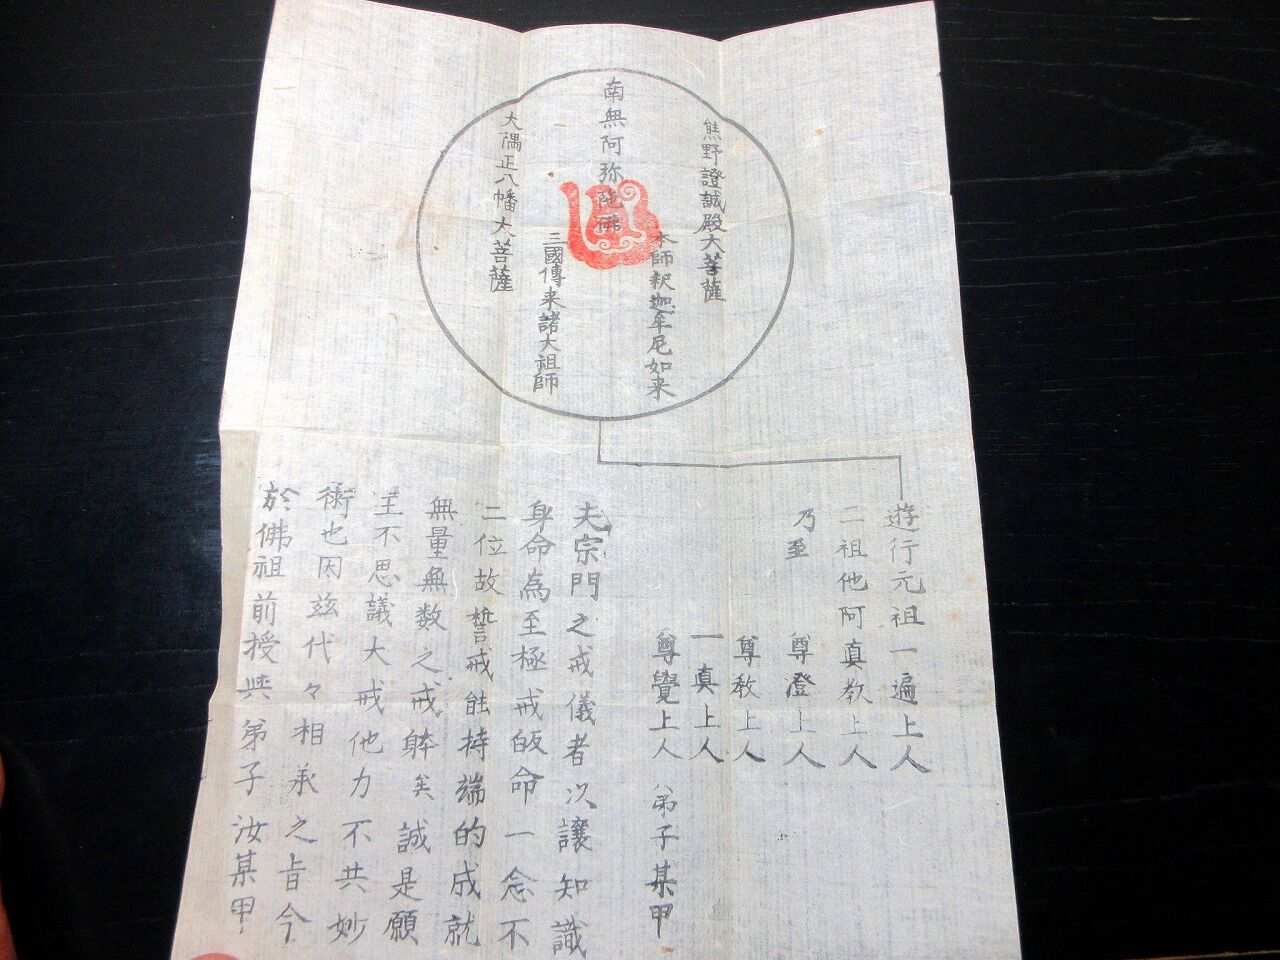 熊野證誠殿大菩薩
本師釈迦牟尼如来
南無阿弥陀佛
三國傳来諸大祖師
大隅正八幡大菩薩
遊行元祖一遍上人
二祖他阿真教上人
乃至 尊澄上人
尊教上人
一真上人
尊覺上人 弟子某甲
夫宗門之戒儀者以讓知識
身命為至極戒皈命一念不
二位故誓戒能持端的成就
無量無数之戒躰矣誠是願
王不思議大戒他力不共妙
術也因玆代々相承之旨今
於佛祖前授与弟子汝某甲